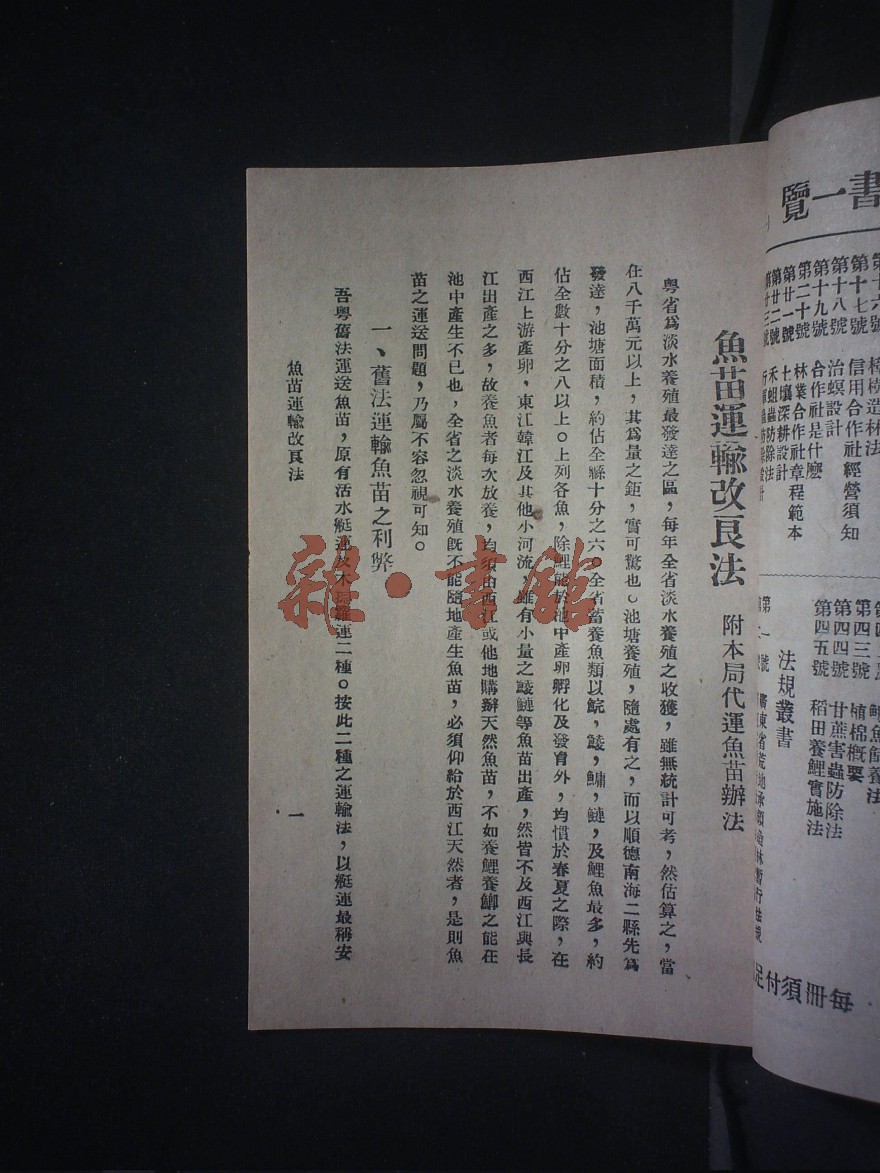 書一覽
第十六號 樟樹造林法
第十七號 信用合作社經營須知
第十八號 治螟設計
第十九號 合作社是什麽
第二十號 林業合作社章程範本
第廿一號 土壤深耕設計
第廿二號 禾蛆蟲防除法
第四三號 植棉概要
第四四號 甘蔗害蟲防除法
第四五號 稻田養鯉實施法
法規叢書
第一號
每冊須付足
魚苗運輸改良法 附本局代運魚苗辦法
粤省爲淡水養殖最發達之區，每年全省淡水養殖之收獲，雖無統計可考，然估算之，當
在八千萬元以上，其爲量之鉅，實可驚也。池塘養殖，隨處有之，而以順德南海二縣先爲
發達，池塘面積，約佔全縣十分之六。全省畜養魚類以鯇，鯪，鱅，鰱，及鯉魚最多，約
佔全數十分之八以上。上列各魚，除鯉能於池中產卵孵化及發育外，均慣於春夏之際，在
西江上游產卵，東江韓江及其他小河流，雖有小量之鯪鰱等魚苗出產，然皆不及西江與長
江出產之多，故養魚者每次放養，均須由西江或他地購辦天然魚苗，不如養鯉養鯽之能在
池中產生不已也，全省之淡水養殖旣不能隨地產生魚苗，必須仰給於西江天然者，是則魚
苗之運送問題，乃屬不容忽視可知。
一、舊法運輸魚苗之利弊
吾粤舊法運送魚苗，原有活水艇運及木桶羅運二種。按此二種之運輸法，以艇運最稱安
魚苗運輸改良法
一
雜·書館